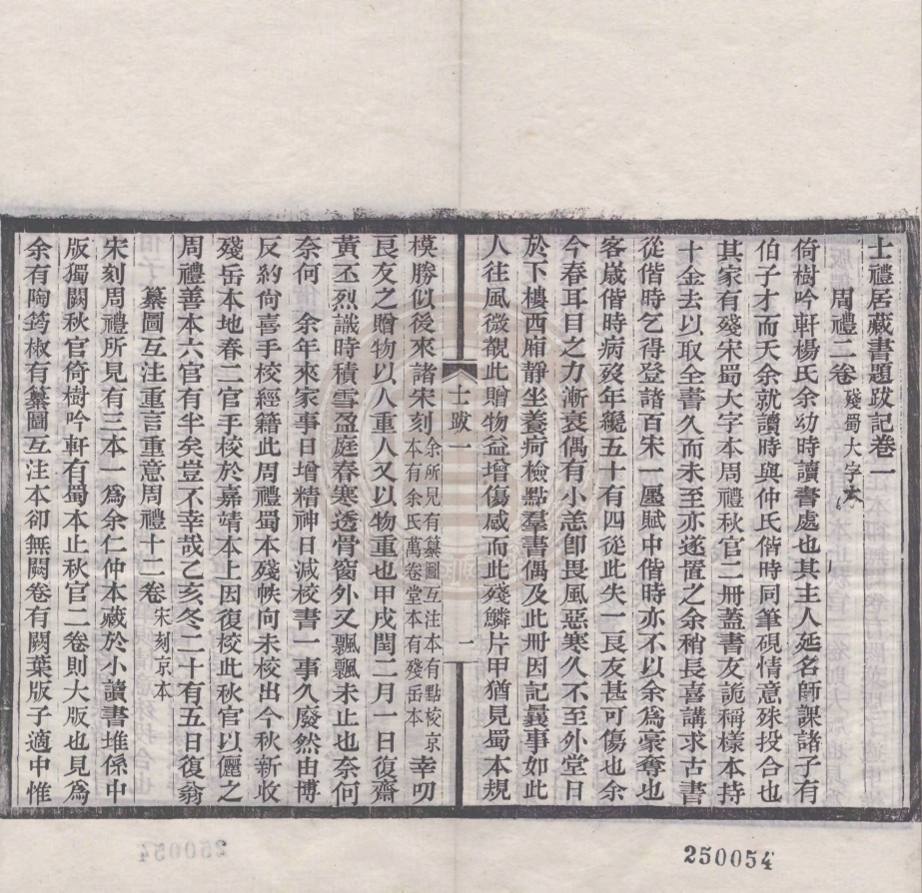 士禮居藏書題跋記卷一
周禮二卷 殘蜀大字本
倚樹吟軒楊氏余幼時讀書處也其主人延名師課諸子有
伯子才而夭余就讀時與仲氏偕時同筆硯情意殊投合也
其家有殘宋蜀大字本周禮秋官二册蓋書友詭稱樣本持
十金去以取全書久而未至亦遂置之余稍長喜講求古書
從偕時乞得登諸百宋一廛賦中偕時亦不以余爲豪奪也
客歲偕時病歿年纔五十有四從此失一良友甚可傷也余
今春耳目之力漸衰偶有小恙卽畏風惡寒久不至外堂日
於下樓西廂靜坐養疴檢點羣書偶及此册因記曩事如此
人往風微覩此贈物益增傷感而此殘鱗片甲猶見蜀本規
士跋一
一
模勝似後來諸宋刻 余所見有纂圖互注本有點校京本有余氏萬卷堂本有殘岳本 幸叨
良友之贈物以人重人又以物重也甲戌閏二月一日復齋
黃丕烈識時積雪盈庭春寒透骨窗外又飄飄未止也奈何
奈何　余年來家事日增精神日減校書一事久廢然由博
反約尙喜手校經籍此周禮蜀本殘帙向未校出今秋新收
殘岳本地春二官手校於嘉靖本上因復校此秋官以儷之
周禮善本六官有半矣豈不幸哉乙亥冬二十有五日復翁
纂圖互注重言重意周禮十二卷 宋刻京本
宋刻周禮所見有三本一爲余仁仲本藏於小讀書堆係中
版獨闕秋官倚樹吟軒有蜀本止秋官二卷則大版也見爲
余有陶筠椒有纂圖互注本卻無闕卷有闕葉版子適中惟
250054